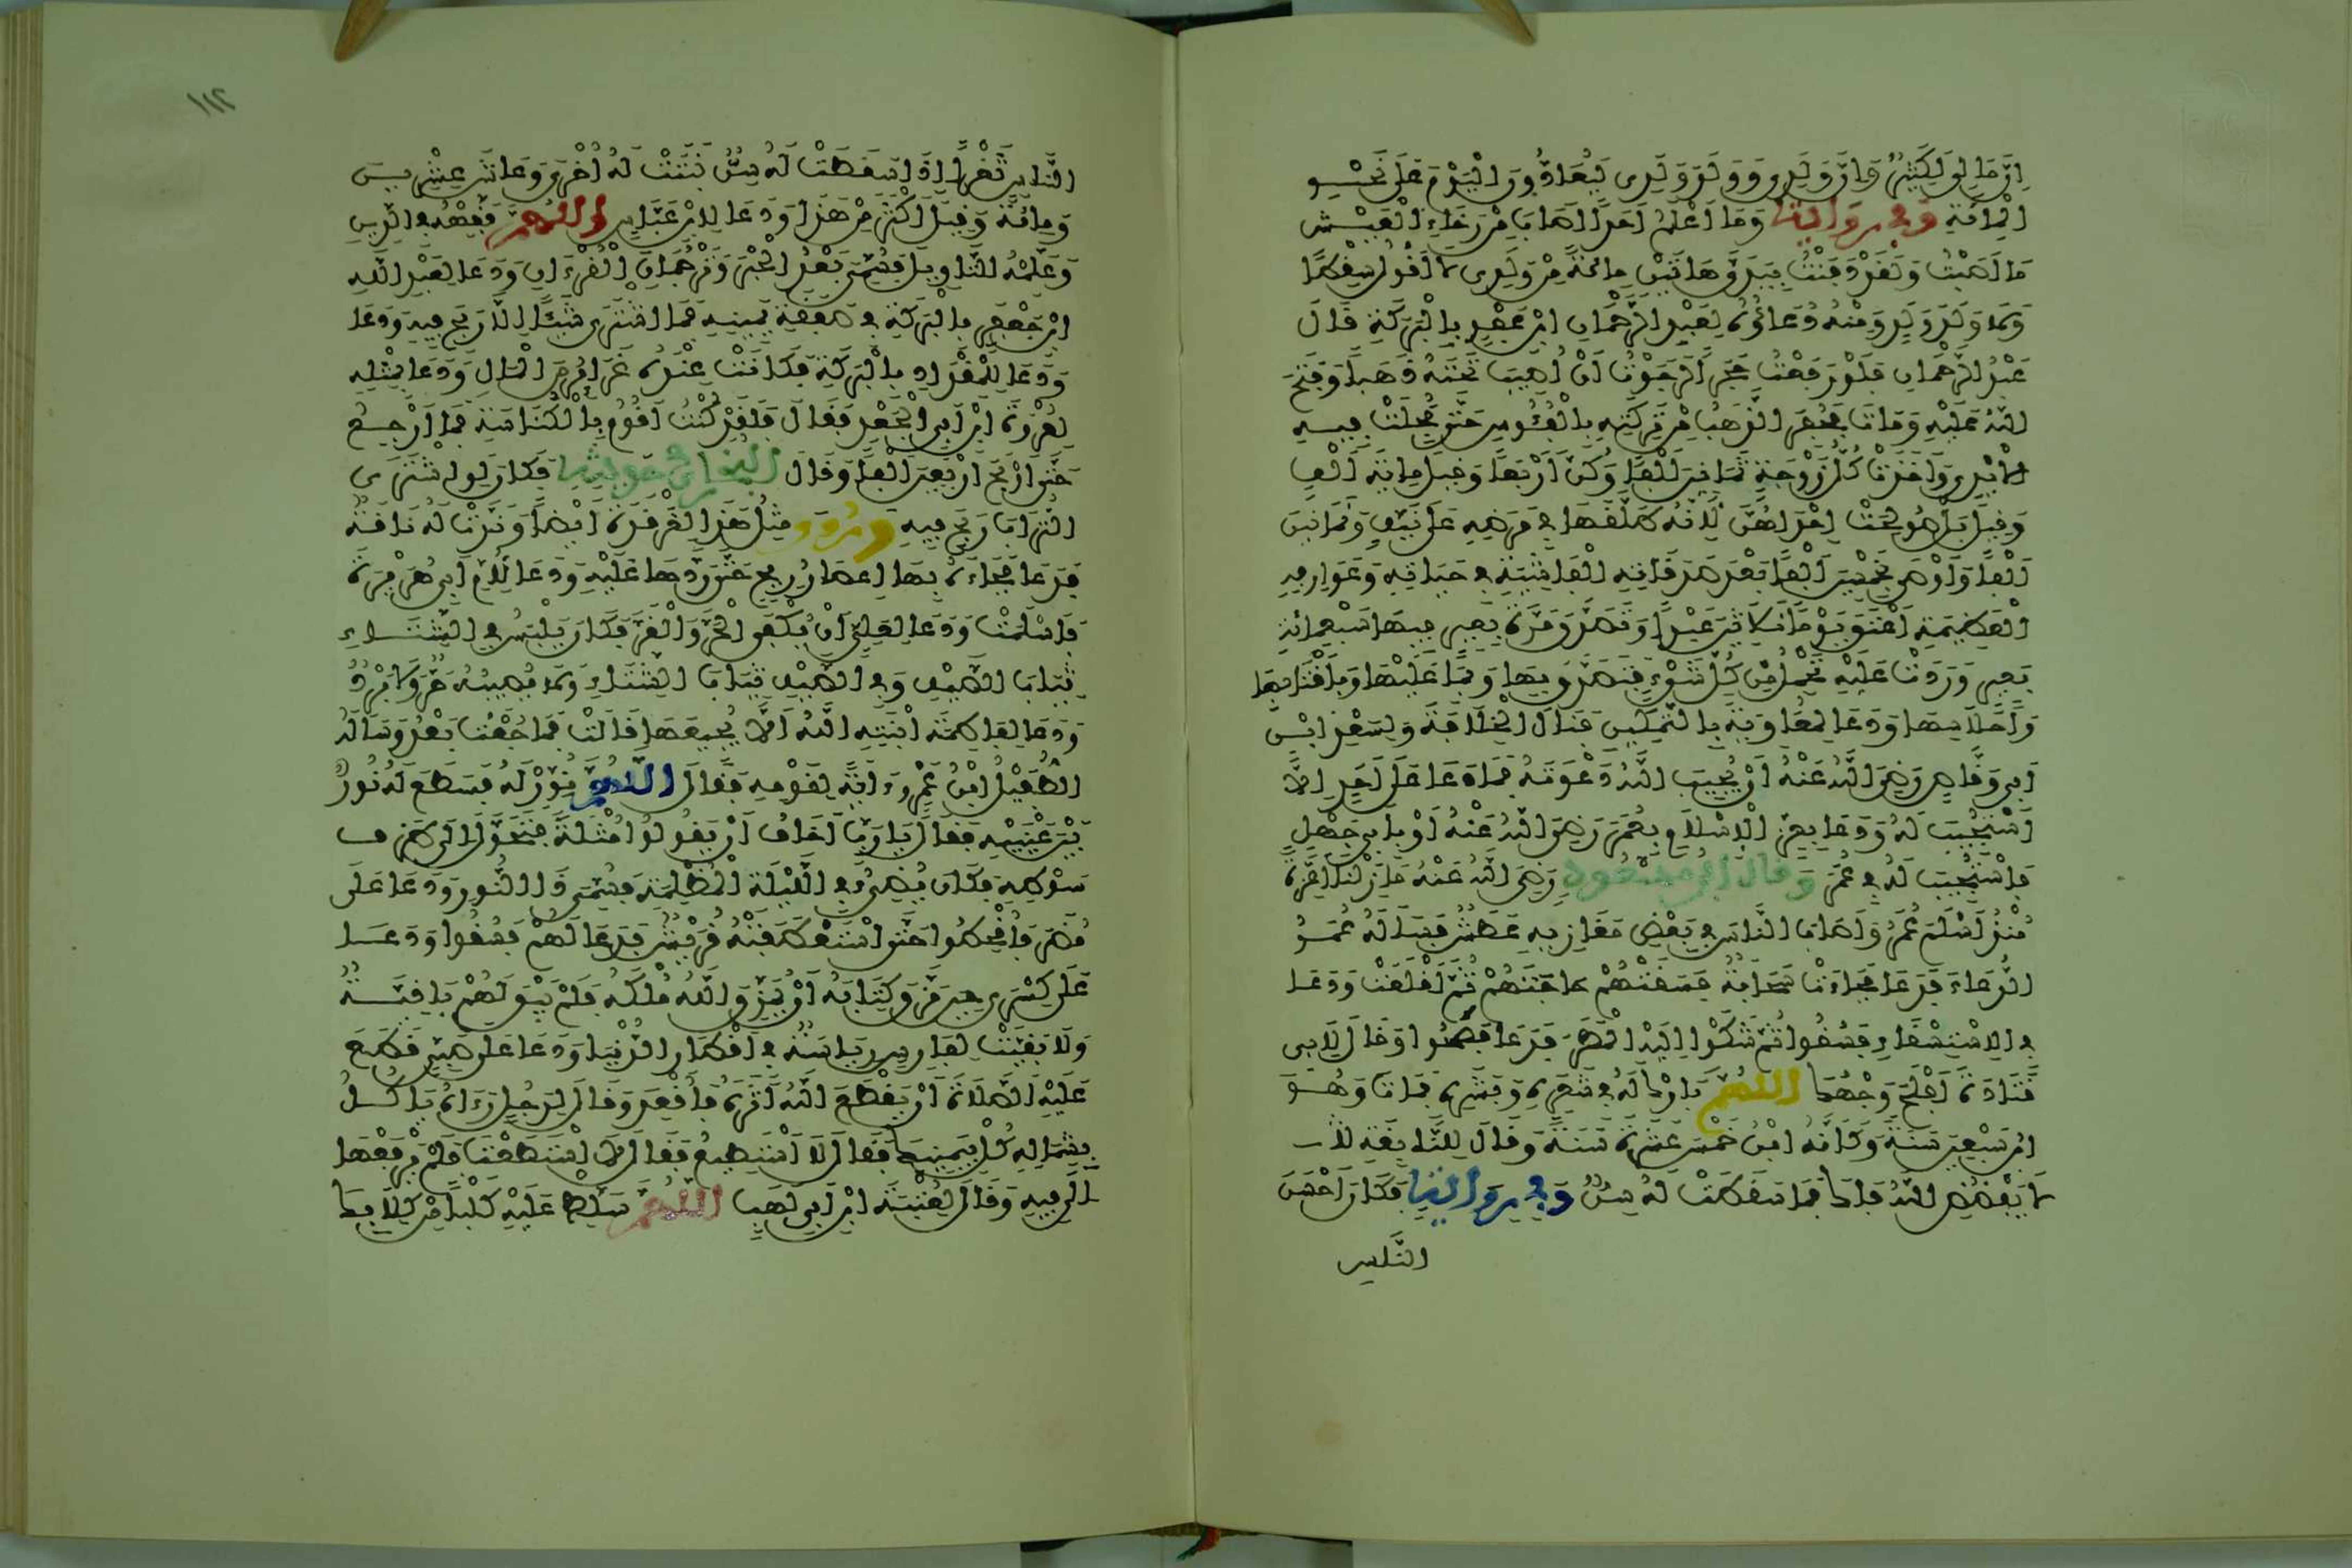 إن مالي لكثير وإن ولدي وولد ولدي ليعادون اليوم على نحو
المائة وفي رواية وما أعلم أحدا أصاب من رخاء العيش
ما أصبت ولقد دفنت بيدي هاتين مائة من ولدي لا أقول سقطا
ولا ولد ولد ومنه دعاؤه لعبد الرحمان ابن عوف بالبركة قال
عبد الرحمان فلو رفعت حجرا لرجوت أن أصيب تحته ذهبا وفتح
الله عليه ومات فحفر الذهب من تركته بالفؤوس حتى مجلت فيه
الأيدي وأخذت كل زوجة ثمانين ألفا وكن أربعا وقيل مائة ألف
وقيل بل صولحت احداهن لأنه طلقها في مرضه على نيف وثمانين
ألفا وأوصى بخمسين ألفا بعد صدقاته الفاشية في حياته وعوارفه
العظيمة أعتق يوما ثلاثين عبدا وتصدق مرة بعير فيها سبعمائة
بعير وردت عليه تحمل من كل شيء فتصدق بها وبما عليها وبأقتابها
وأحلاسها ودعا لمعاوية بالتمكين فنال الخلافة ولسعد ابن
أبي وقاص رضي الله عنه أن يجيب الله دعوته فما دعا على أحد إلا
استجيب له ودعا بعز الإسلام بعمر رضي الله عنه أو بأبي جهل
فاستجيب له في عمر وقال ابن مسعود رضي الله عنه ما زلنا أعزة
منذ أسلم عمر وأصاب الناس في بعض مغازيه عطش فسأله عمر
الدعاء فدعا فجاءت سحابة فسقتهم حاجتهم ثم أقلعت ودعا
في الاستسقاء فسقوا ثم شكوا إليه المطر فدعا فصحوا وقال لأبي
قتادة أفلح وجهك اللهم بارك له في شعره وبشره فمات وهو
ابن سبعين سنة وكأنه ابن خمس عشرة سنة وقال للنابغة لا
لا يفضض الله فاك فما سقطت له سن وفي رواية فكان أحسن
الناس
١١٢
الناس ثغرا إذا سقطت له سن نبتت له أخرى وعاش عشرين
ومائة وقيل أكثر من هذا ودعا لابن عباس اللهم فقهه في الدين
وعلمه التاويل فسمي بعد الحبر وترجمان القرءان ودعا لعبد الله
ابن جعفر بالبركة في صفقة يمينه فما اشترى شيئا إلا ربح فيه ودعا
ودعا للمقداد بالبركة فكانت عنده غرائر من المال ودعا بمثله
لعروة ابن أبي الجعد فقال فلقد كنت أقوم بالكناسة فما أرجع
حتى أربح أربعين ألفا وقال البخاري في حديثه فكان لو اشترى
التراب ربح فيه وروي مثل هذا لغرقدة أيضا وندت له ناقة
فدعا فجاءه بها إعصار ريح حتى ردها عليه ودعا لأم أبي هريرة
فأسلمت ودعا لعلي أن يكفى الحر والقر فكان يلبس في الشتاء
ثياب الصيف وفي الصيف ثياب الشتاء ولا يصيبه حر ولا برد
ودعا لفاطمة ابنته الله ألا يجيعها قالت فما جعت بعد وسأله
الطفيل ابن عمرو ءاية لقومه فقال اللهم نور له فسطع له نور
بين عينيه فقال يا رب أخاف أن يقولوا مثلة فتحول إلى طرف
سوطه فكان يضيء في الليلة المظلمة فسمي ذا النور ودعا على
مضر فأقحطوا حتى استعطفته قريش فدعا لهم فسقوا ودعا
على كسرى حين مزق كتابه أن يمزق الله ملكه فلم يبق لهم باقية
ولا بقيت لفارس رياسة في أقطار الدنيا ودعا على صبي قطع
عليه الصلاة أن يقطع الله أثره فأقعد وقال لرجل رءاه يأكل
بشماله كل بيمينك فقال لا أستطيع فقال لا استطعت فلم يرفعها
إلى فيه وقال لعتبة ابن أبي لهب اللهم سلط عليه كلبا من كلابك